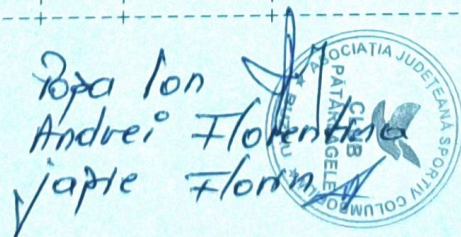 Popa Ion
Andrei Florentina
Japie Florin
ASOCIAȚIA JUDEȚEANĂ SPORTIV COLUMBOFILĂ
CLUB
PĂTÂRLAGELE
BUZĂU